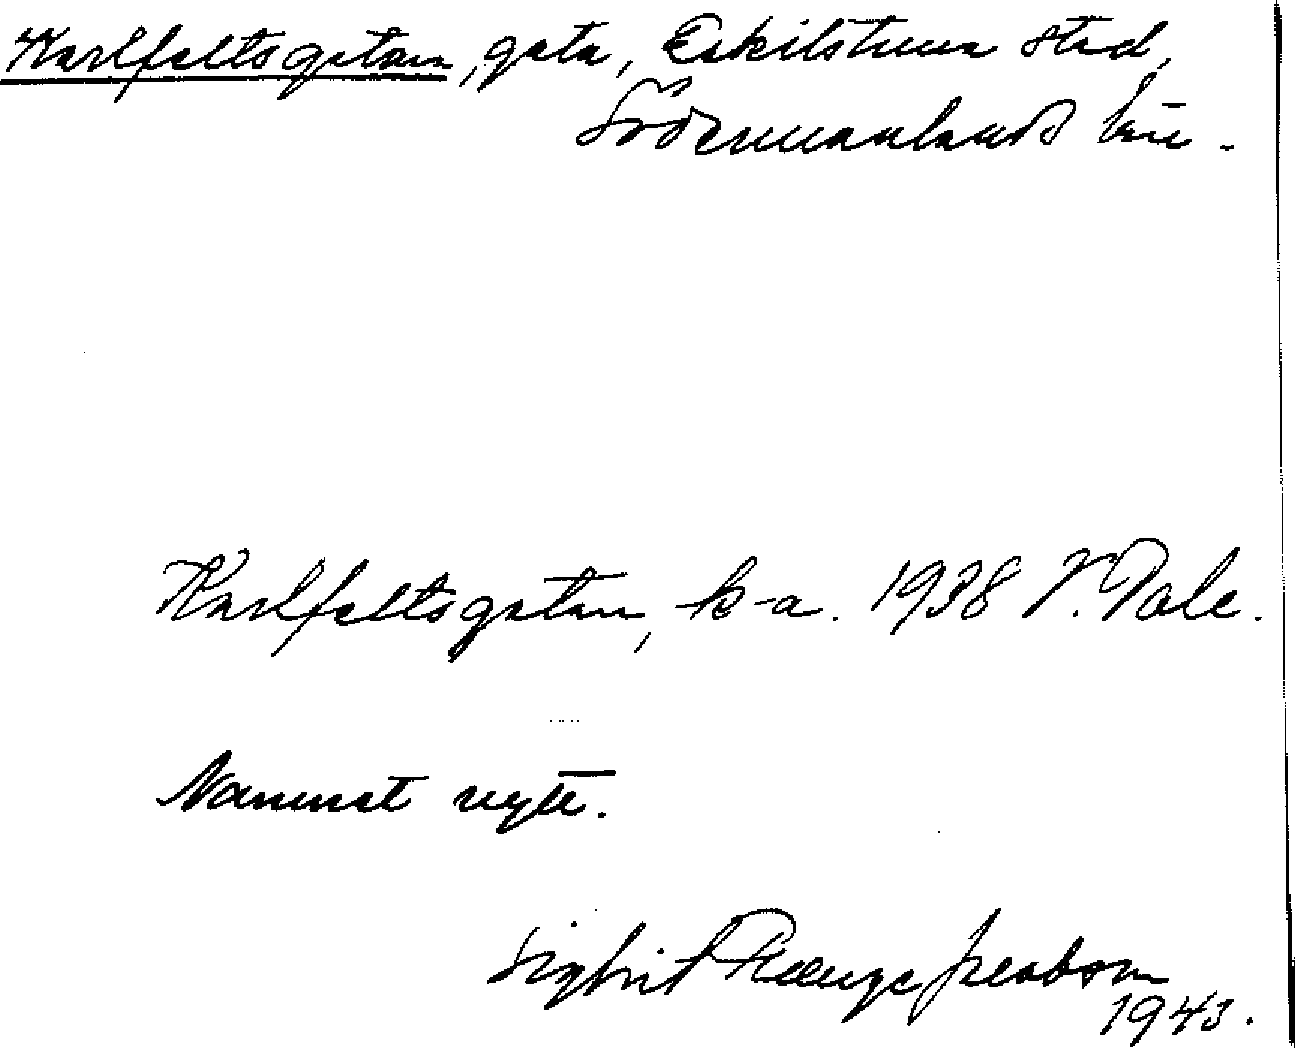 Karlfeltsgatan, gata, Eskilstuna stad,
Södermanlands län.
Karlfeltsgatan, k-a. 1938 V. Dale.
Namnet nytt.
Sigbrit Jacobson
1943.